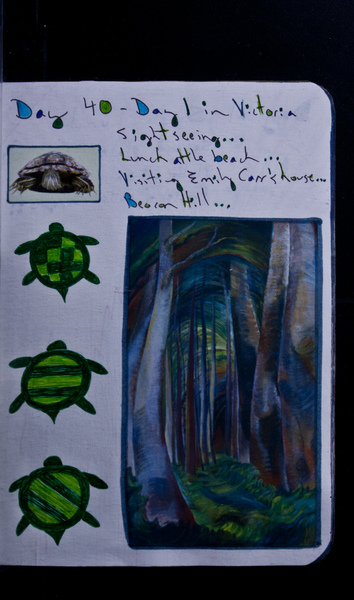 Day 40 - Day 1 in Victoria
Sightseeing...
Lunch at the beach...
Visiting Emily Carr's house...
Beacon Hill...